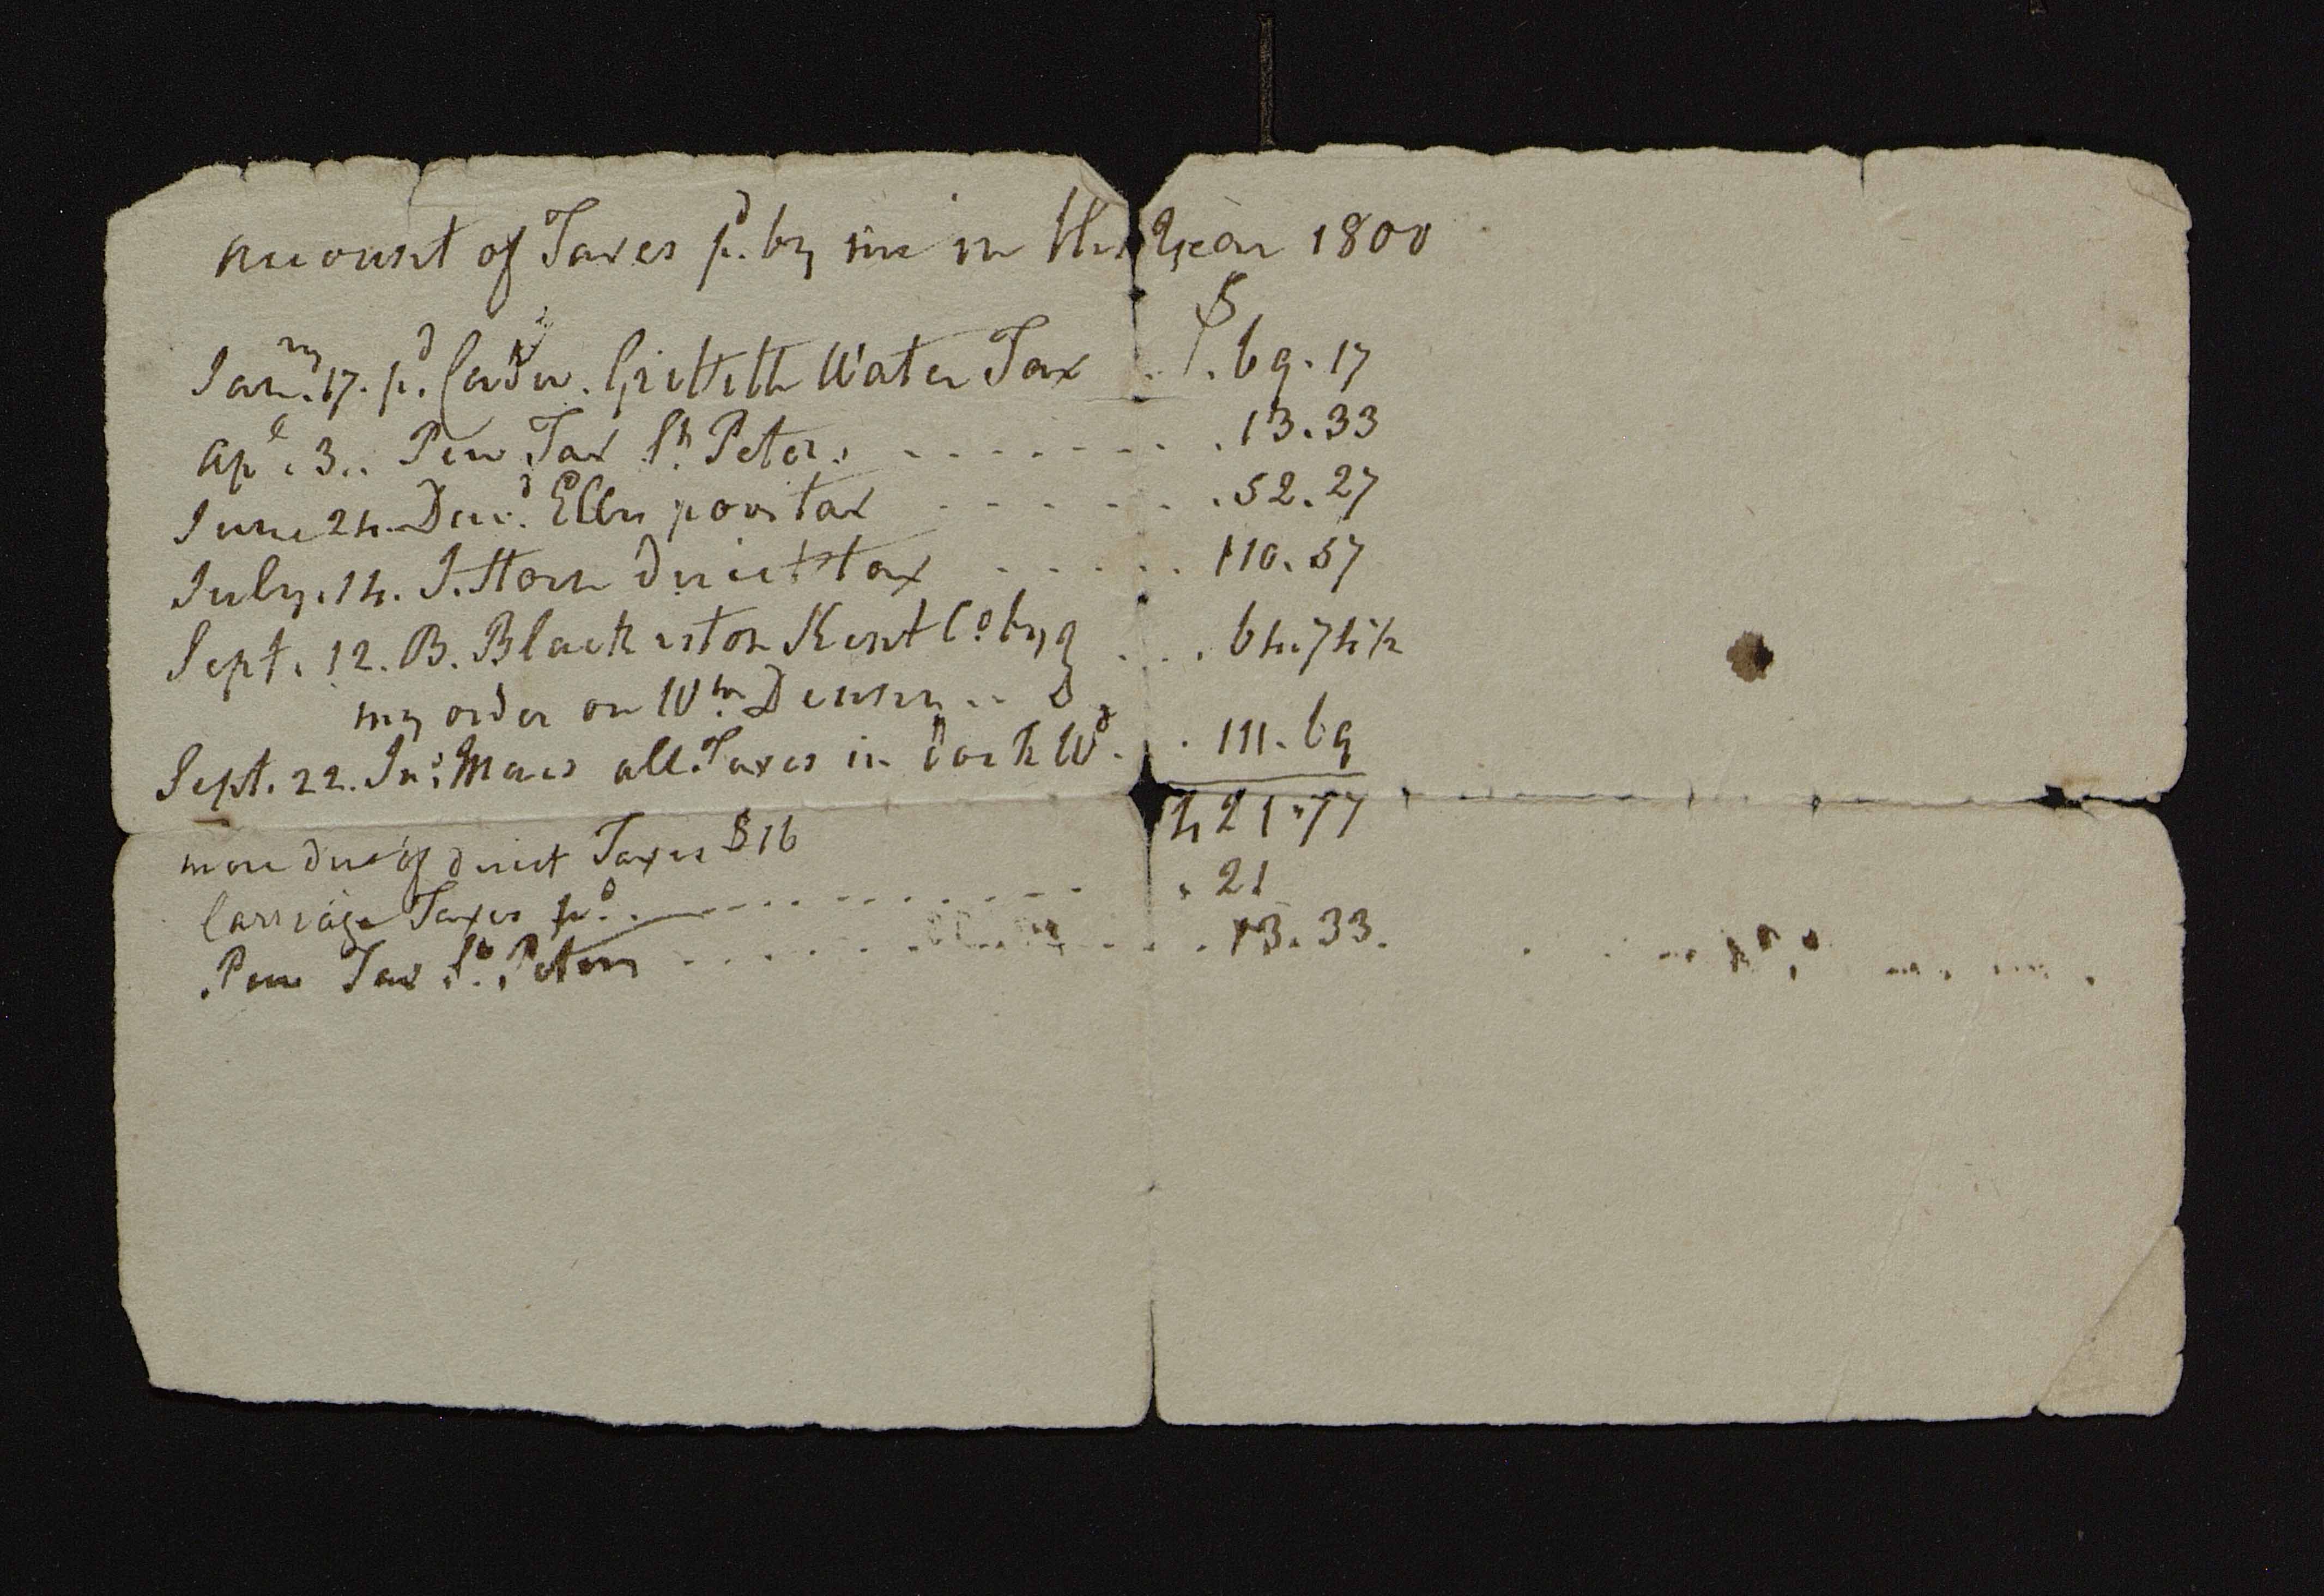 Amount of Taxes pd. by me in the Year 1800
$
Janry. 17. pd. Cadw. Griffith Water Tax . . 69.17
Apl. 3.. Pew Tax St. Peters . . . . . . . . 13.33
June 24. Ellis poor tax . . . . . . . 52.27
July. 14. J. Horn Direct tax . . . . . 110.57
Sept. 12. B. Blackiston Kent Co. by } . . . 64.74½
my order on Wm. Denny ..
Sept. 22. Jno. all Taxes in Dock Wd. . . 111.69
421.77
more due of direct Taxes $16
Carriage Taxes pd. . . . . . . . . . . . 21
Pew Tax St. Peters . . . . . . . . . . . 13.33.